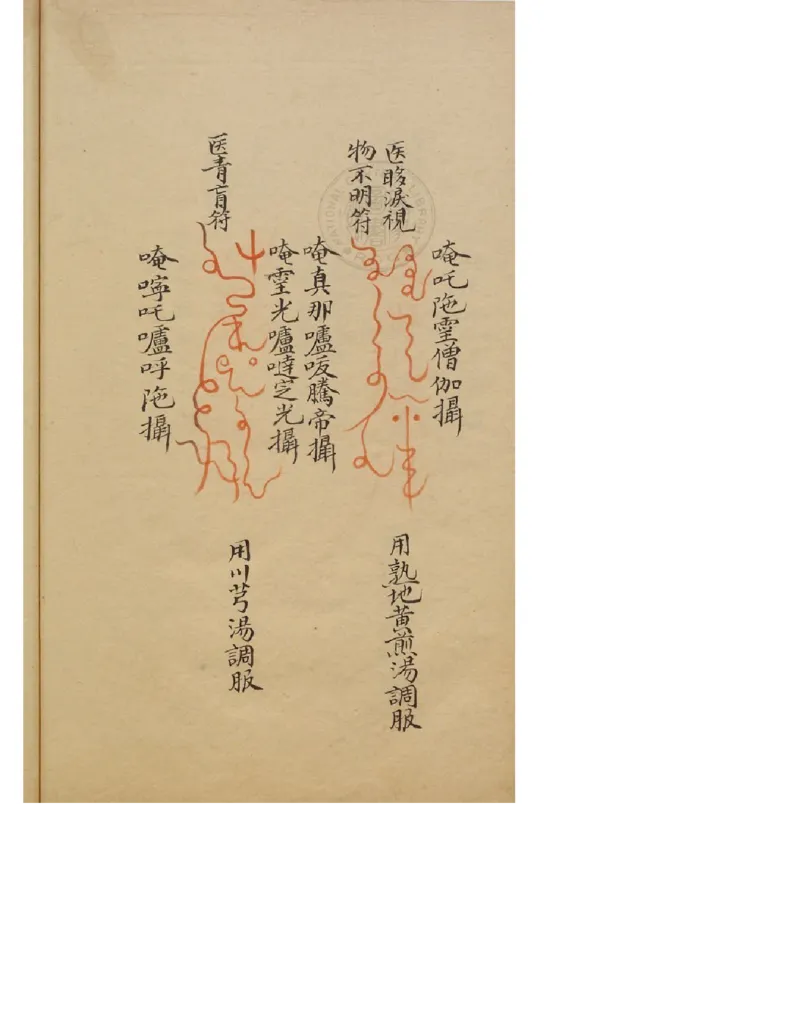 医眵淚視
物不明符
唵吒陁霊僧伽攝
唵真那嚧㕹騰帝攝
用熟地黄煎湯調服
医青盲符
唵霊光嚧噠定光攝
唵嚀吒嚧呼陁攝
用川芎湯調服